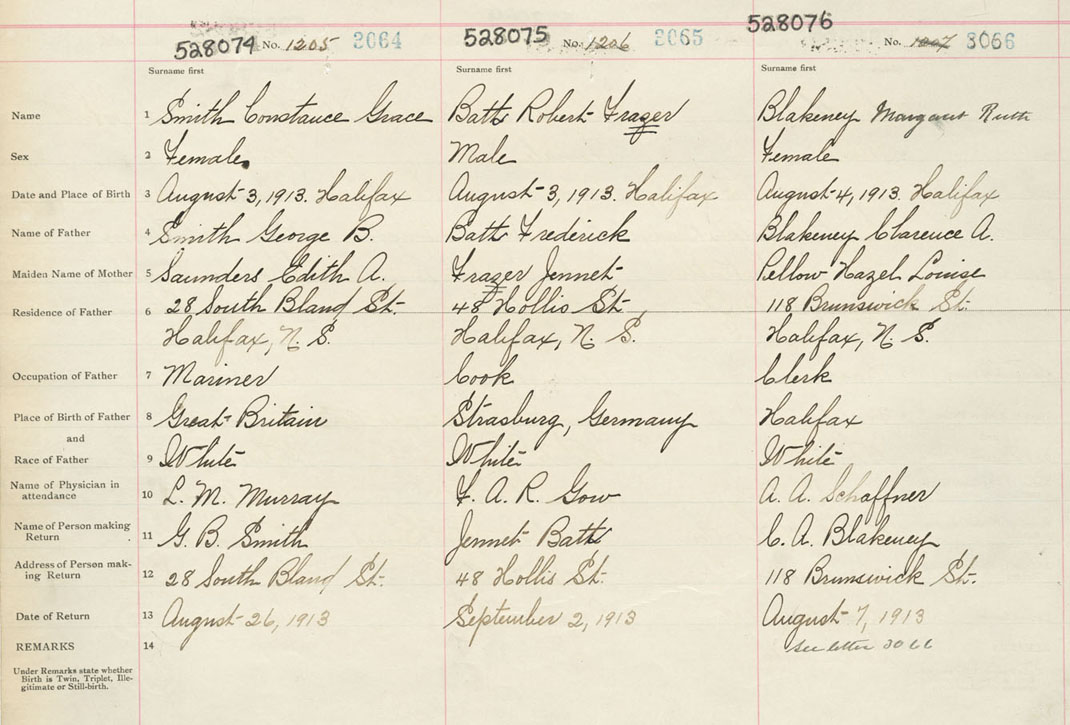 528074 No. 1205 3064 528075 No. 1206 3065 528076 No. 1207 3066
Surname first Surname first Surname first
Name 1 Smith Constance Grace Batts Robert Frazer Blakeney Margaret Ruth
Sex 2 Female Male Female
Date and Place of Birth 3 August 3, 1913. Halifax August 3, 1913. Halifax August 4, 1913. Halifax
Name of Father 4 Smith George B. Batts Frederick Blakeney Clarence A.
Maiden Name of Mother 5 Saunders Edith A. Frazer Jennet Pellow Hazel Louise
Residence of Father 6 28 South Bland St. 48 Hollis St. 118 Brunswick St.
Halifax, N. S. Halifax, N. S. Halifax, N. S.
Occupation of Father 7 Mariner Cook Clerk
Place of Birth of Father 8 Great Britain Strasburg, Germany Halifax
and
Race of Father 9 White White White
Name of Physician in
attendance 10 L. M. Murray F. A. R. Gow A. A. Schaffner
Name of Person making
Return 11 G. B. Smith Jennet Batts C. A. Blakeney
Address of Person mak-
ing Return 12 28 South Bland St. 48 Hollis St. 118 Brunswick St.
Date of Return 13 August 26, 1913 September 2, 1913 August 7, 1913
REMARKS 14 See letter 3066
Under Remarks state whether
Birth is Twin, Triplet, Ille-
gitimate or Still-birth.